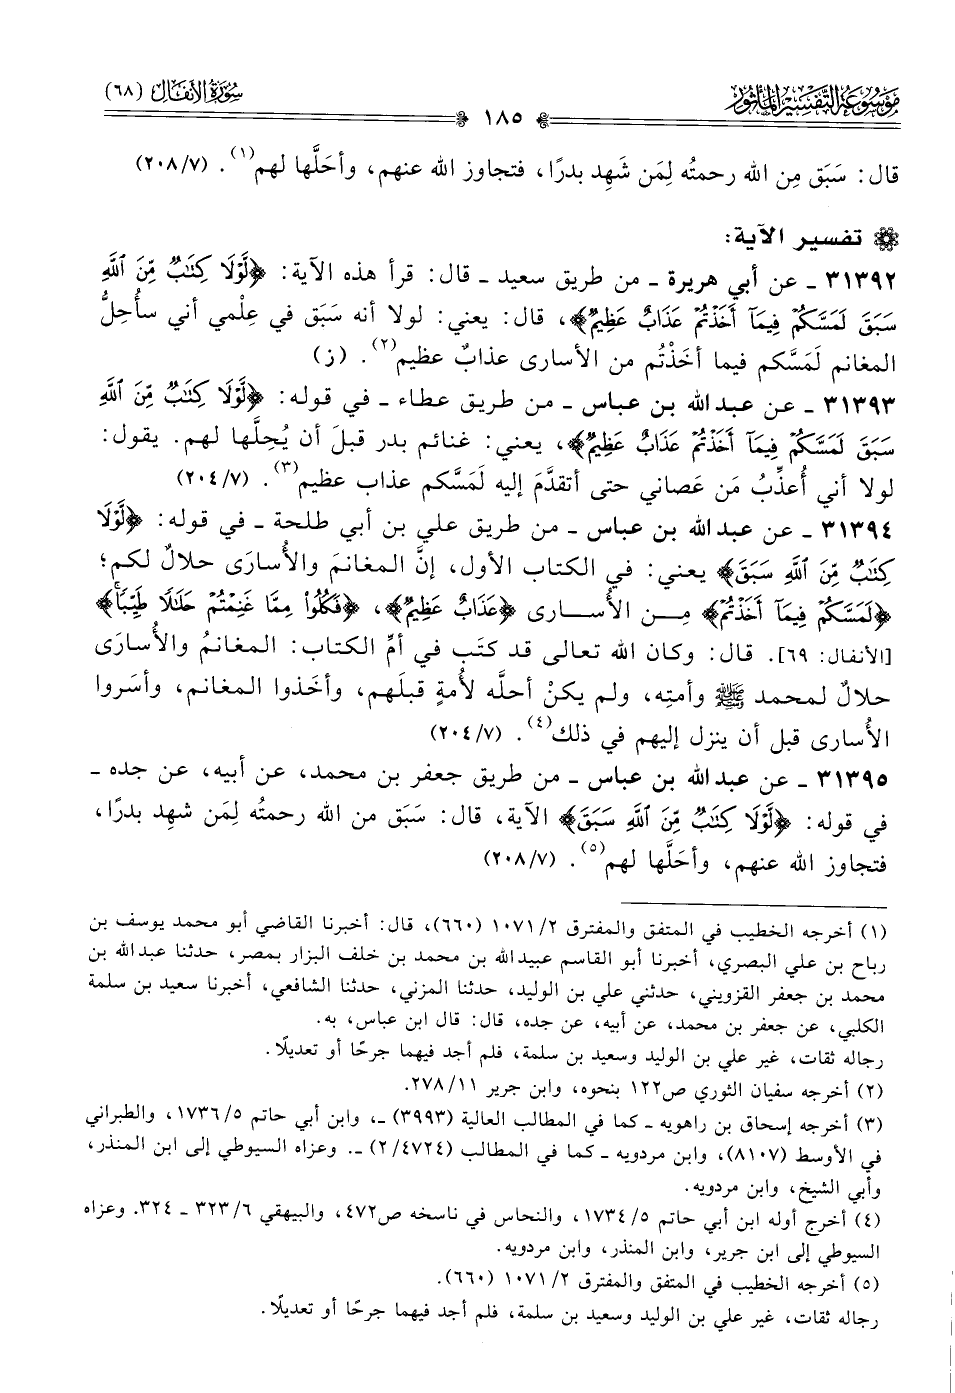 موسوعة التفسير المأثور
١٨٥
سورة الأنفال (٦٨)
قال: سَبَق مِن الله رحمتُه لِمَن شَهِد بدرًا، فتجاوز الله عنهم، وأحَلَّها لهم(١). (٢٠٨/٧)
تفسير الآية:
٣١٣٩٢ ـ عن أبي هريرة ـ من طريق سعيد ـ قال: قرأ هذه الآية: ﴿لَّوْلَا كِتَٰبٌ مِّنَ ٱللَّهِ
سَبَقَ لَمَسَّكُمْ فِيمَآ أَخَذْتُمْ عَذَابٌ عَظِيمٌ﴾، قال: يعني: لولا أنه سَبَق في عِلْمي أني سأُحِلُّ
المغانم لَمَسَّكم فيما أخَذْتُم من الأسارى عذابٌ عظيم(٢). (ز)
٣١٣٩٣ ـ عن عبد الله بن عباس ـ من طريق عطاء ـ في قوله: ﴿لَّوْلَا كِتَٰبٌ مِّنَ ٱللَّهِ
سَبَقَ لَمَسَّكُمْ فِيمَآ أَخَذْتُمْ عَذَابٌ عَظِيمٌ﴾، يعني: غنائم بدر قبلَ أن يُحِلَّها لهم. يقول:
لولا أني أُعذِّبُ مَن عَصاني حتى أتقدَّمَ إليه لَمَسَّكم عذاب عظيم(٣). (٢٠٤/٧)
٣١٣٩٤ ـ عن عبد الله بن عباس ـ من طريق علي بن أبي طلحة ـ في قوله: ﴿لَّوْلَا
كِتَٰبٌ مِّنَ ٱللَّهِ سَبَقَ﴾ يعني: في الكتاب الأول، إنَّ المغانمَ والأُسارَى حلالٌ لكم؛
﴿لَمَسَّكُمْ فِيمَآ أَخَذْتُمْ﴾ مِـن الأُسـارى ﴿عَذَابٌ عَظِيمٌ﴾، ﴿فَكُلُوا۟ مِمَّا غَنِمْتُمْ حَلَٰلًا طَيِّبًا﴾
[الأنفال: ٦٩]. قال: وكان الله تعالى قد كتَب في أمِّ الكتاب: المغانمُ والأُسارَى
حلالٌ لمحمد ﷺ وأمتِه، ولم يكنْ أحله لأمةٍ قبلَهم، وأخَذوا المغانم، وأسَروا
الأُسارى قبل أن ينزل إليهم في ذلك(٤). (٢٠٤/٧)
٣١٣٩٥ ـ عن عبد الله بن عباس ـ من طريق جعفر بن محمد، عن أبيه، عن جده ـ
في قوله: ﴿لَّوْلَا كِتَٰبٌ مِّنَ ٱللَّهِ سَبَقَ﴾ الآية، قال: سَبَق من الله رحمتُه لِمَن شهِد بدرًا،
فتجاوز الله عنهم، وأحَلَّها لهم(٥). (٢٠٨/٧)
(١) أخرجه الخطيب في المتفق والمفترق ١٠٧١/٢ (٦٦٠)، قال: أخبرنا القاضي أبو محمد يوسف بن
رباح بن علي البصري، أخبرنا أبو القاسم عبيد الله بن محمد بن خلف البزار بمصر، حدثنا عبد الله بن
محمد بن جعفر القزويني، حدثني علي بن الوليد، حدثنا المزني، حدثنا الشافعي، أخبرنا سعيد بن سلمة
الكلبي، عن جعفر بن محمد، عن أبيه، عن جده، قال: قال ابن عباس، به.
رجاله ثقات، غير علي بن الوليد وسعيد بن سلمة، فلم أجد فيهما جرحًا أو تعديلًا.
(٢) أخرجه سفيان الثوري ص١٢٢ بنحوه، وابن جرير ٢٧٨/١١.
(٣) أخرجه إسحاق بن راهويه ـ كما في المطالب العالية (٣٩٩٣) ـ، وابن أبي حاتم ١٧٣٦/٥، والطبراني
في الأوسط (٨١٠٧)، وابن مردويه ـ كما في المطالب (٢/٤٧٢٤) ـ. وعزاه السيوطي إلى ابن المنذر،
وأبي الشيخ، وابن مردويه.
(٤) أخرج أوله ابن أبي حاتم ١٧٣٤/٥، والنحاس في ناسخه ص٤٧٢، والبيهقي ٣٢٣/٦ ـ ٣٢٤. وعزاه
السيوطي إلى ابن جرير، وابن المنذر، وابن مردويه.
(٥) أخرجه الخطيب في المتفق والمفترق ١٠٧١/٢ (٦٦٠).
رجاله ثقات، غير علي بن الوليد وسعيد بن سلمة، فلم أجد فيهما جرحًا أو تعديلًا.